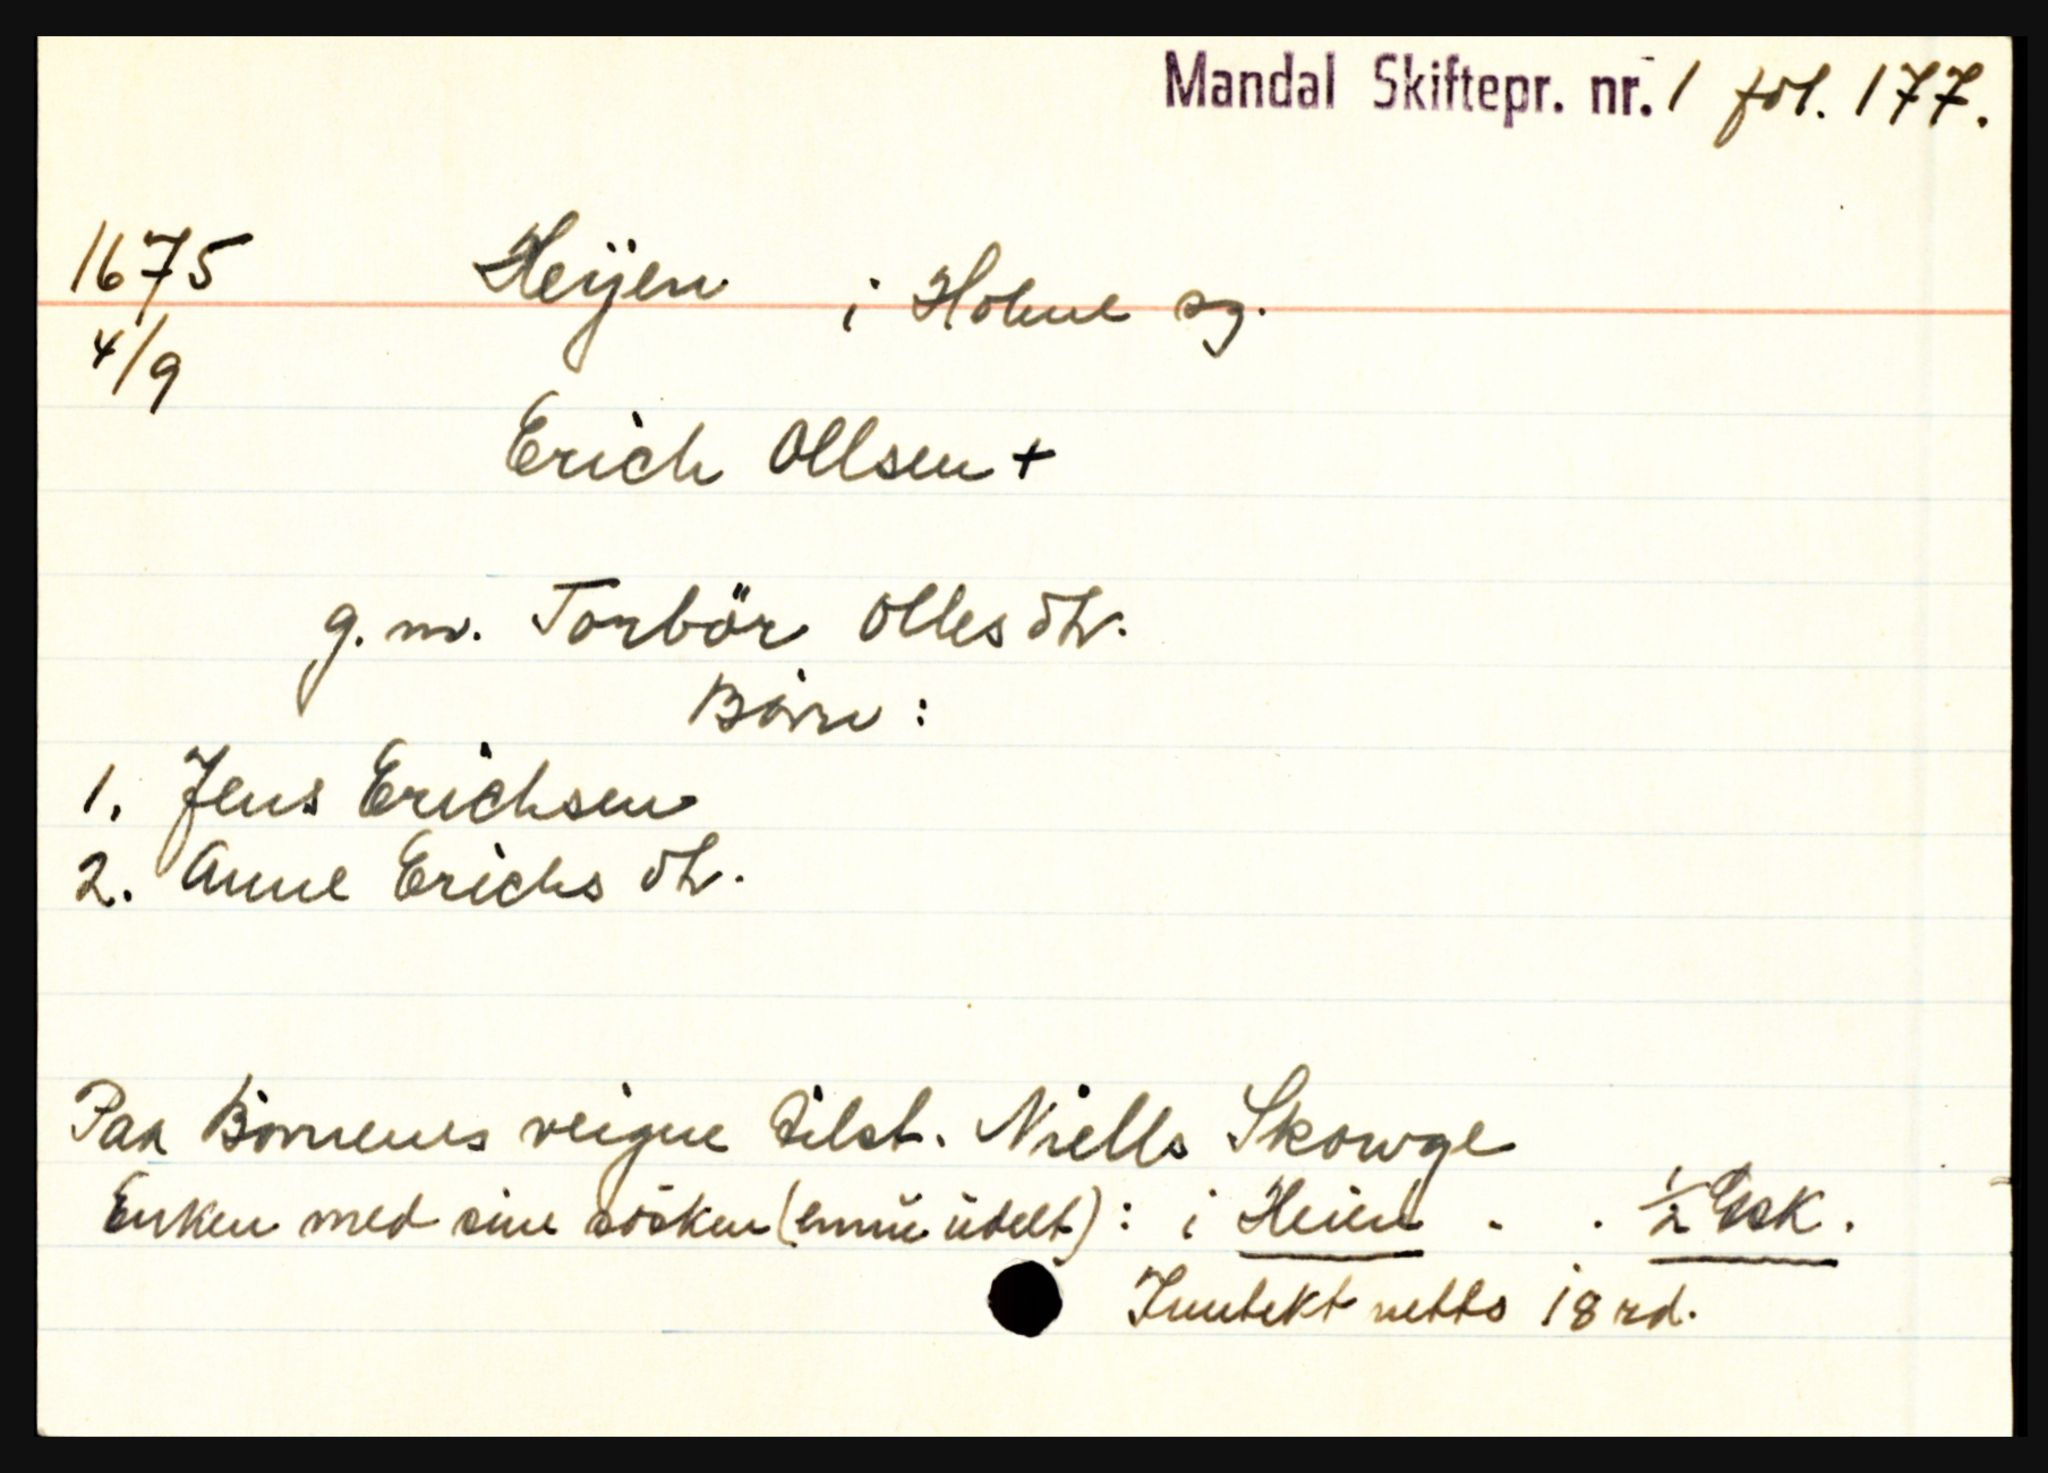 Mandal Skiftepr. nr. 1 fol. 177.
1675
4/9
Heijen i Holme sg.
Erich Ollsen +
g. m. Torbör Olles dtr.
Börn:
1. Jens Erichsen
2. Anne Erichs dtr.
Paa Börnenes veigne tilst. Niells Skowge
Enken med sine sösken (ennu udelt): i Heien . . 1/2 Esk.
Inntekt netto 18 rd.